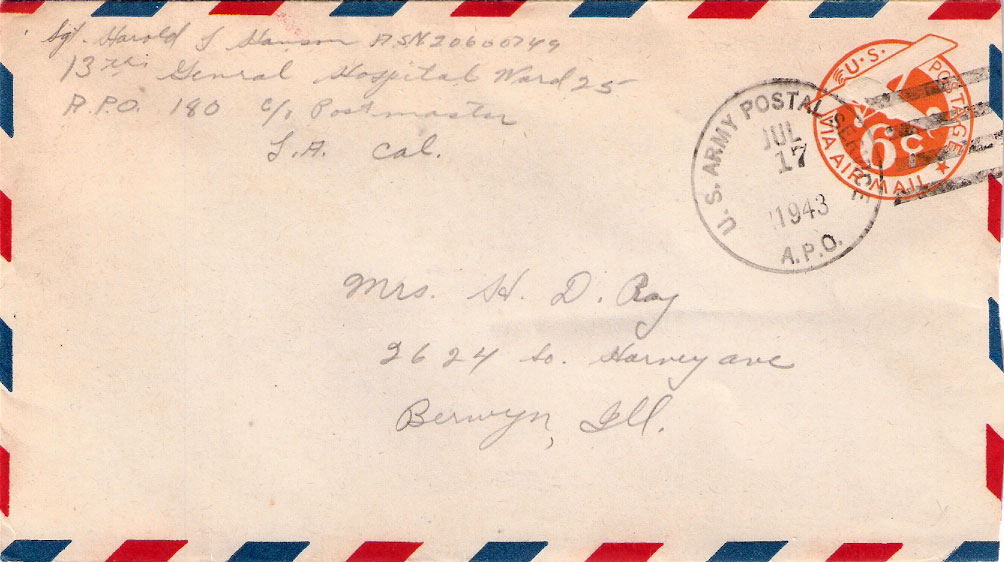 Sgt. Harold L Hanson ASN 20600749
13th General Hospital Ward 25
A.P.O. 180 c/o Postmaster
L.A. Cal.
U.S. POSTAGE
VIA AIR MAIL
6c
U.S. ARMY POSTAL SERVICE
JUL
17
1943
A.P.O.
Mrs. H. D. Ray
2624 So. Harvey ave
Berwyn, Ill.